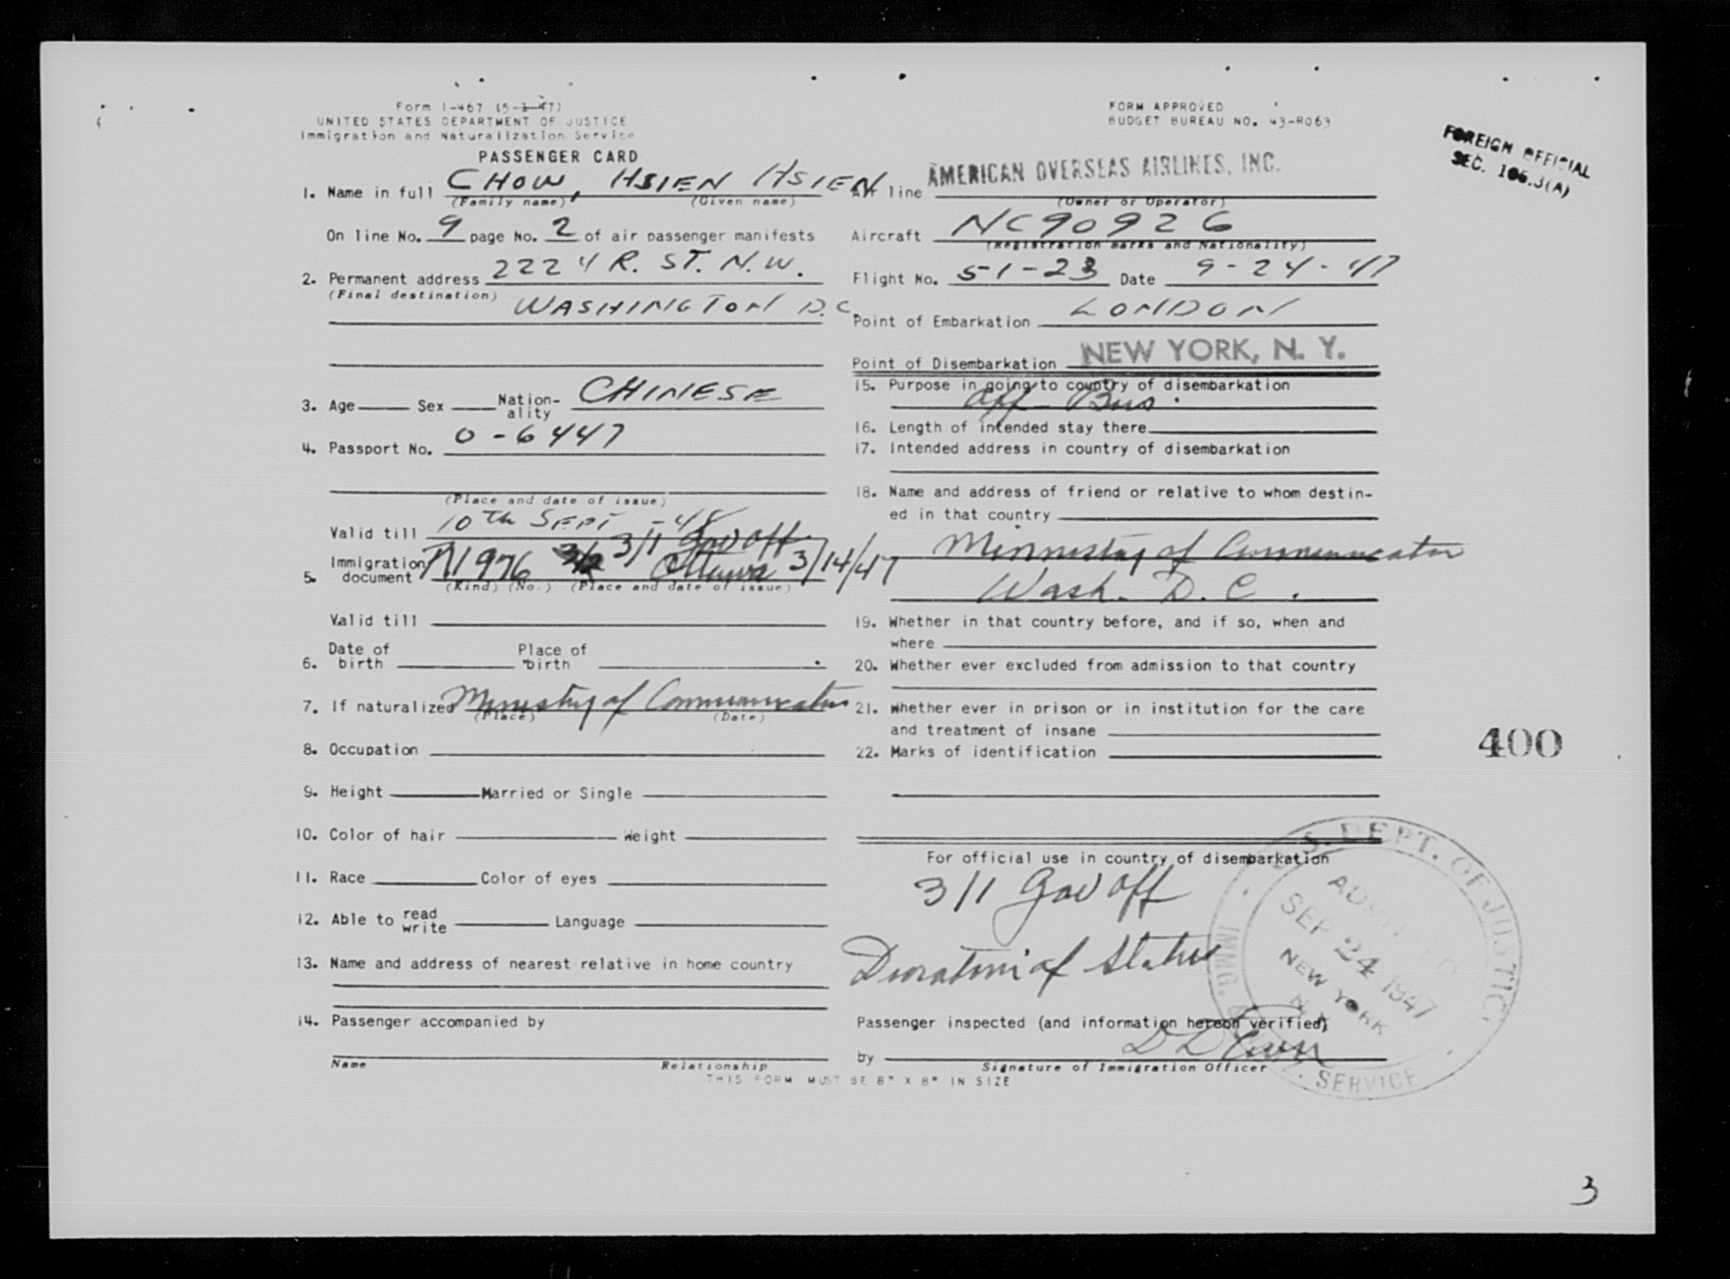 Form I-467 (5-1-47)
UNITED STATES DEPARTMENT OF JUSTICE
Immigration and Naturalization Service
PASSENGER CARD
1. Name in full CHOW, HSIEN HSIEN
(Family name) (Given name)
On line No. 9 page No. 2 of air passenger manifests
2. Permanent address 2224 R. ST. N.W.
(Final destination) WASHINGTON D.C.
3. Age Sex Nation-ality CHINESE
4. Passport No. 0-6447
(Place and date of issue)
Valid till 10th SEPT -48
3/1 Gov off
5. Immigration document 1976 Ottawa 3/14/47
(Kind) (No.) (Place and date of issue)
Valid till
6. Date of birth Place of birth
7. If naturalized Ministry of Communication
(Place) (Date)
8. Occupation
9. Height Married or Single
10. Color of hair Weight
11. Race Color of eyes
12. Able to read write Language
13. Name and address of nearest relative in home country
14. Passenger accompanied by
Name Relationship
THIS FORM MUST BE 8" X 8" IN SIZE
FORM APPROVED
BUDGET BUREAU NO. 43-R063
FOREIGN OFFICIAL
SEC. 106.3(A)
Air line AMERICAN OVERSEAS AIRLINES, INC.
(Owner or Operator)
Aircraft NC90926
(Registration marks and Nationality)
Flight No. 5-1-23 Date 9-24-47
Point of Embarkation LONDON
Point of Disembarkation NEW YORK, N. Y.
15. Purpose in going to country of disembarkation
Off Bus.
16. Length of intended stay there
17. Intended address in country of disembarkation
18. Name and address of friend or relative to whom destin-
ed in that country
Minnistry of Communicator
Wash. D. C.
19. Whether in that country before, and if so, when and
where
20. Whether ever excluded from admission to that country
21. Whether ever in prison or in institution for the care
and treatment of insane
22. Marks of identification
400
For official use in country of disembarkation
3/1 Gov off
Duration of Status
U.S. DEPT. OF JUSTICE
ADMITTED
SEP 24 1947
NEW YORK
N.Y.
IMMIG. & NATZ. SERVICE
Passenger inspected (and information hereon verified)
by
Signature of Immigration Officer
3